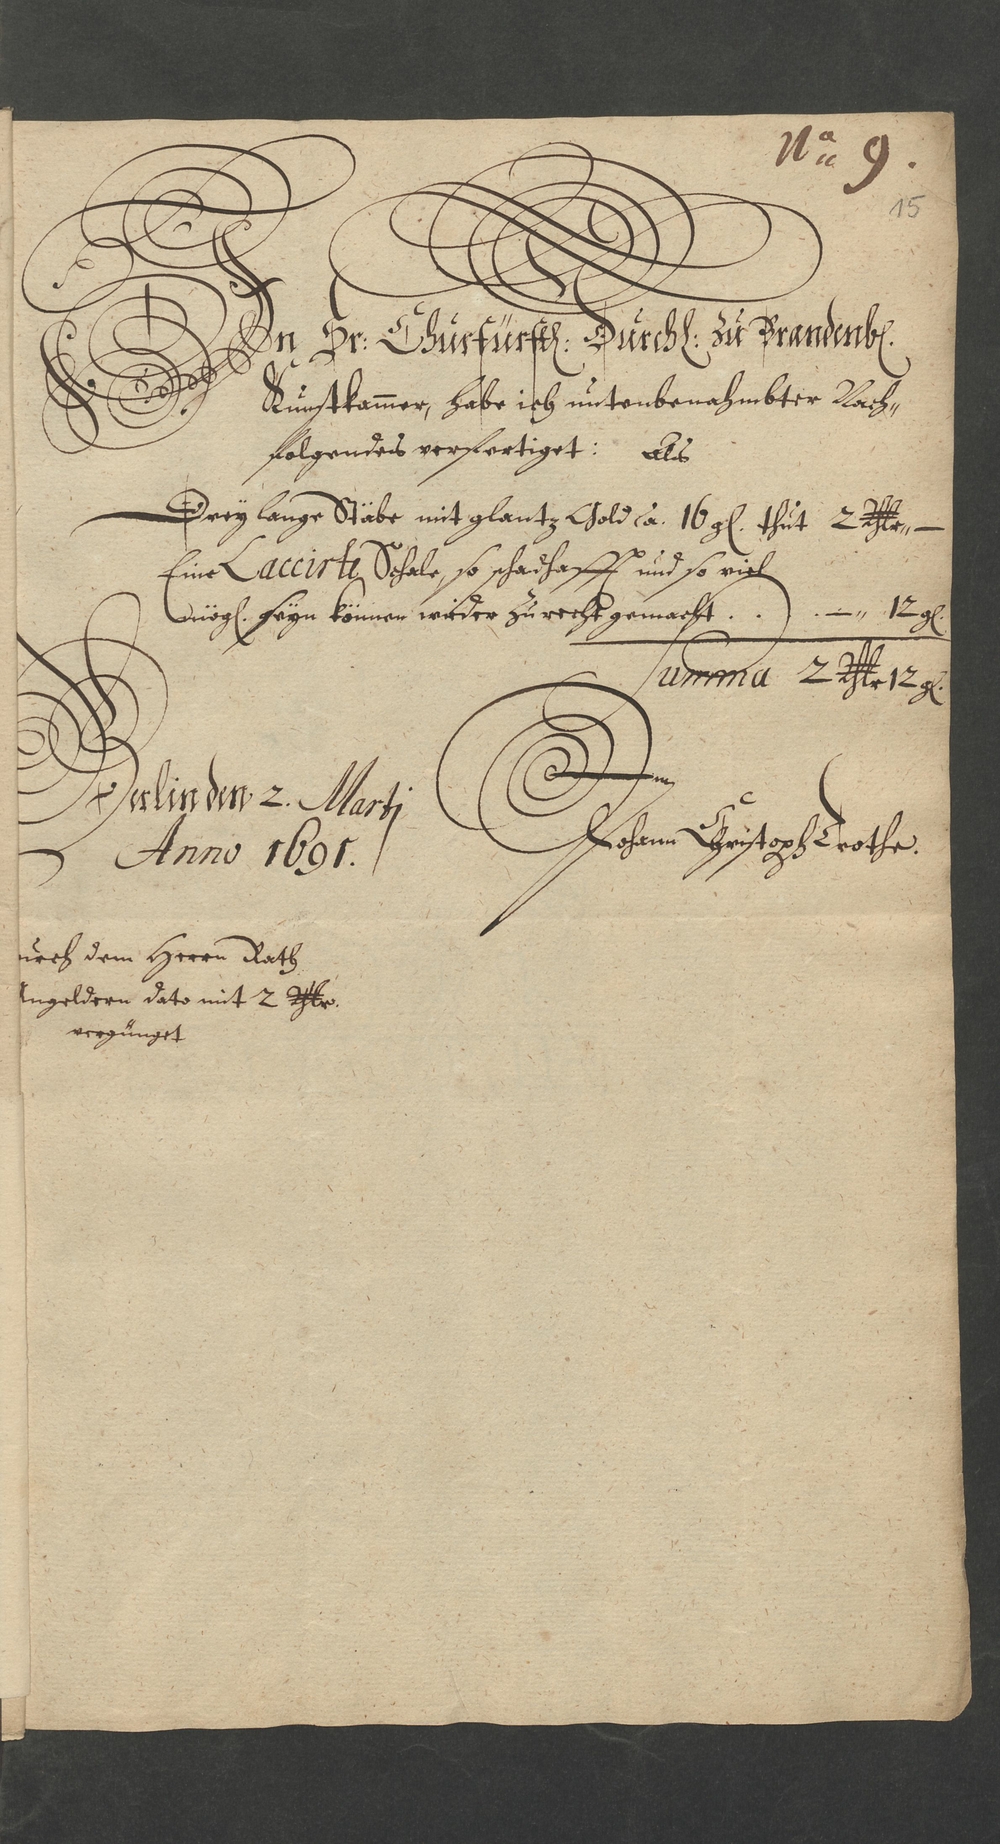 No 9.
15
In Sr: Churfürstl: Durchl: zu Brandenb.
Kunstkam̅er, habe ich untenbenahmbter Nach„
folgendes verfertiget: Als
Drey lange Stäbe mit glantz Gold a. 16 gl. thut 2 Thlr„—
Eine Laccirte Schale, so schadhafft und so viel
mögl. seyn können wieder zu recht gemacht . . . —„ 12 gl.
Summa 2 Thlr 12 gl.
Berlin den 2. Martj
Anno 1691.
Johann Christoph Trothe.
urch dem Herrn Rath
dato mit 2 Thlr.
vergünget